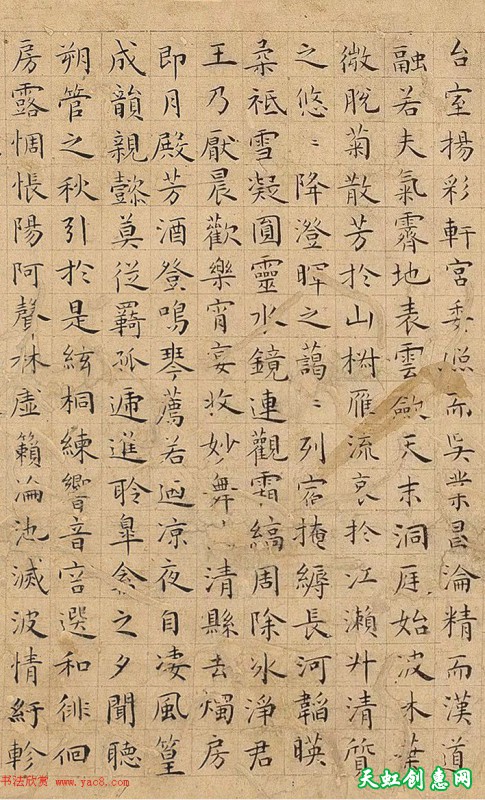 台室揚彩軒宮委照而吳業昌淪精而漢道
融若夫氣霽地表雲斂天末洞庭始波木葉
微脫菊散芳於山椒雁流哀於江瀨升清質
之悠〻降澄暉之藹〻列宿掩縟長河韜暎
柔祇雪凝圓靈水鏡連觀霜縞周除冰淨君
王乃厭晨歡樂宵宴收妙舞㢮清縣去燭房
即月殿芳酒登鳴琴薦若廼凉夜自凄風篁
成韻親懿莫從羇孤遞進聆皐禽之夕聞聽
朔管之秋引於是絃桐練響音容選和徘徊
房露惆悵陽阿聲林虛籟淪池滅波情紆軫
书法欣赏 www.yac8.com
天虹创意网